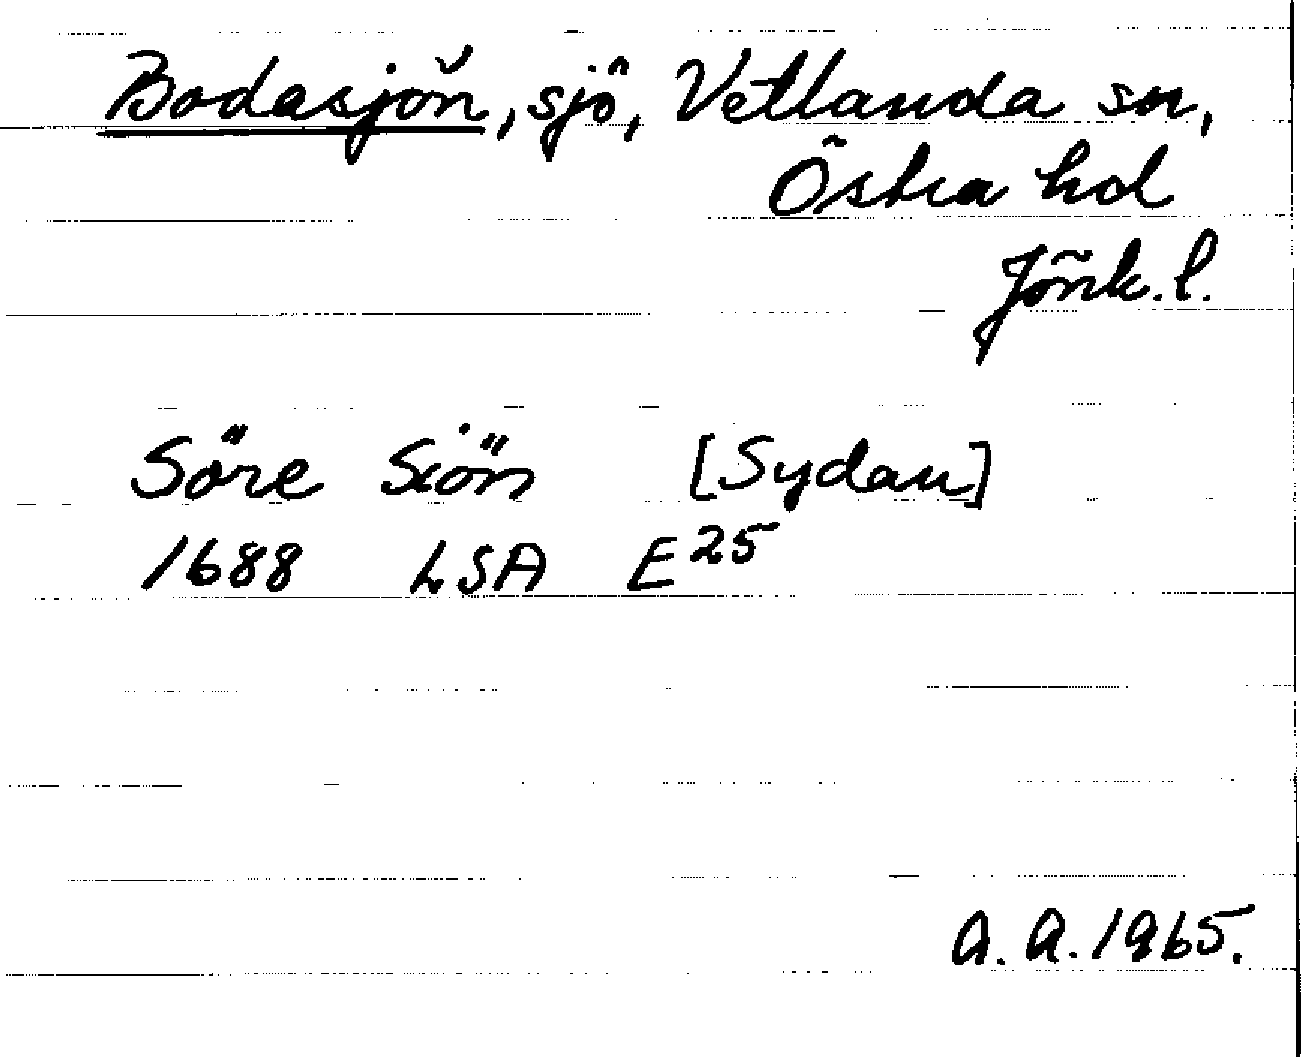 Bodasjön, sjö, Vetlanda sn,
Östra hd
Jönk. l.
Söre Siön [Sydan]
1688 LSA E25
A. A. 1965.